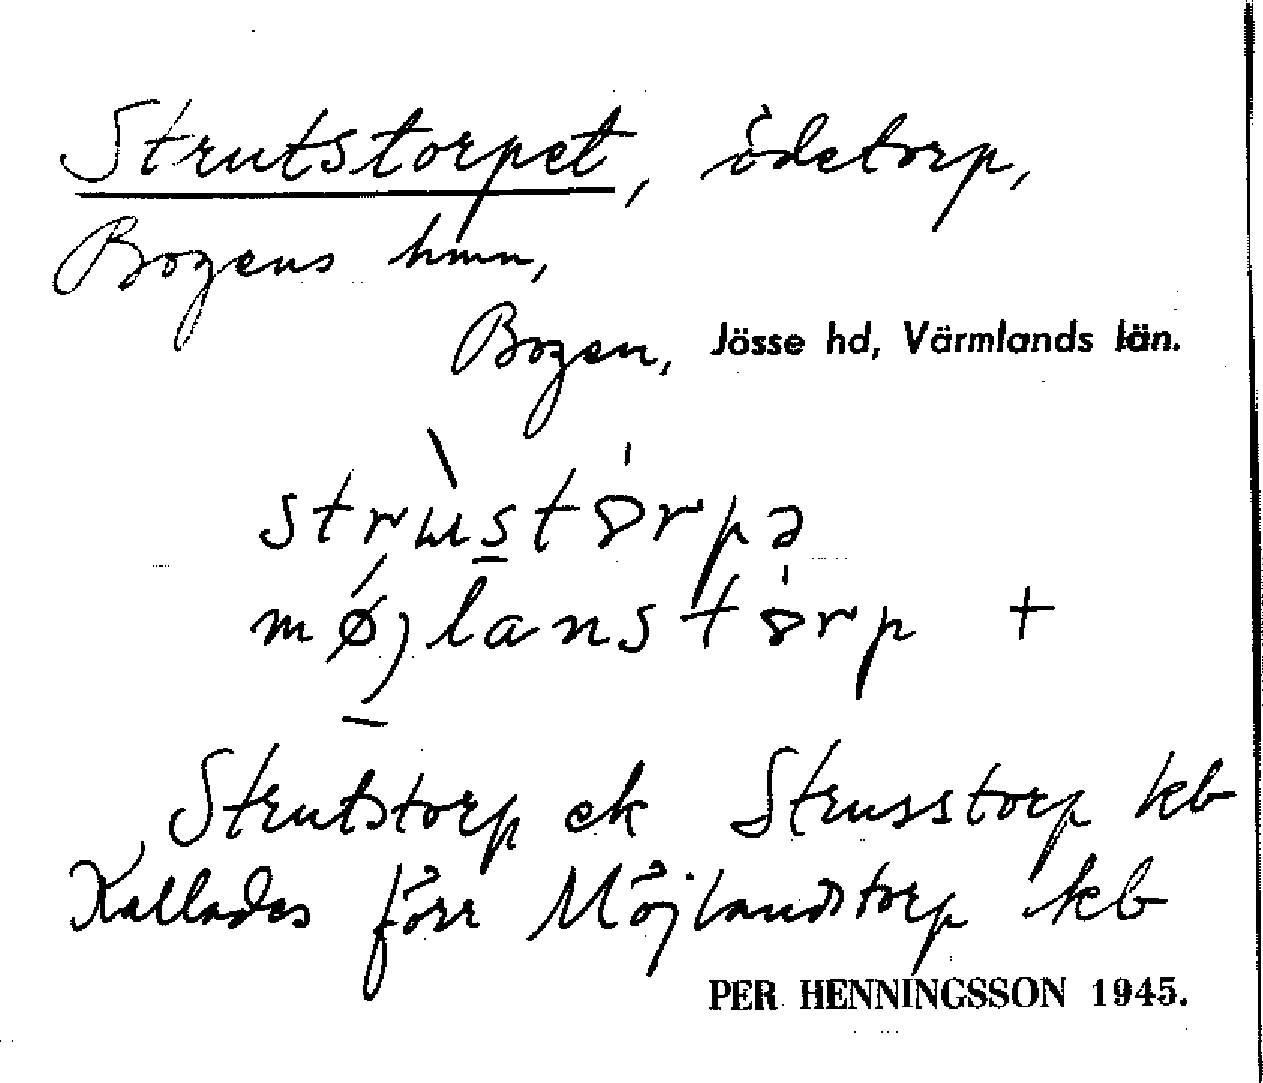 Strutstorpet, ödetorp,
Bogens hmn,
Bogen, Jösse hd, Värmlands län.
strùstơrpə
møjlanstơrp +
Strutstorp ek Strusstorp kb
Kallades förr Möjlandstorp kb
PER HENNINGSSON 1945.